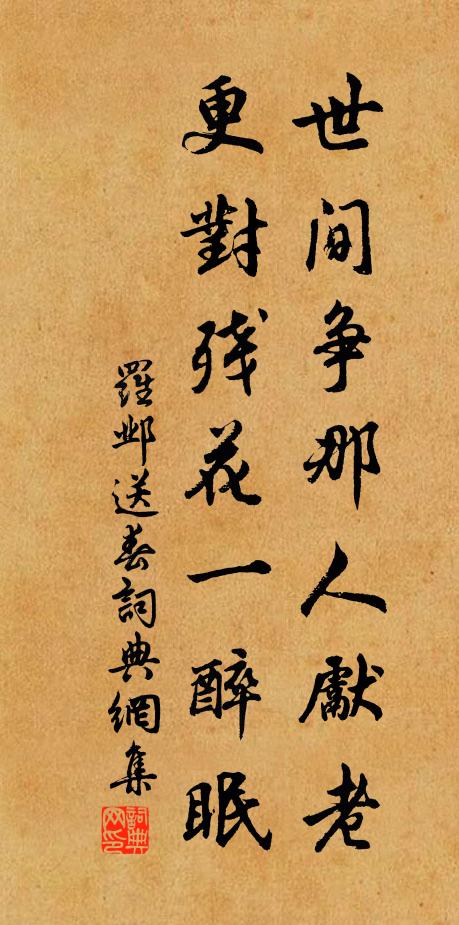 世間争那人獻老
更對殘花一醉眠
羅鄴送春詞典網集
詞典网印